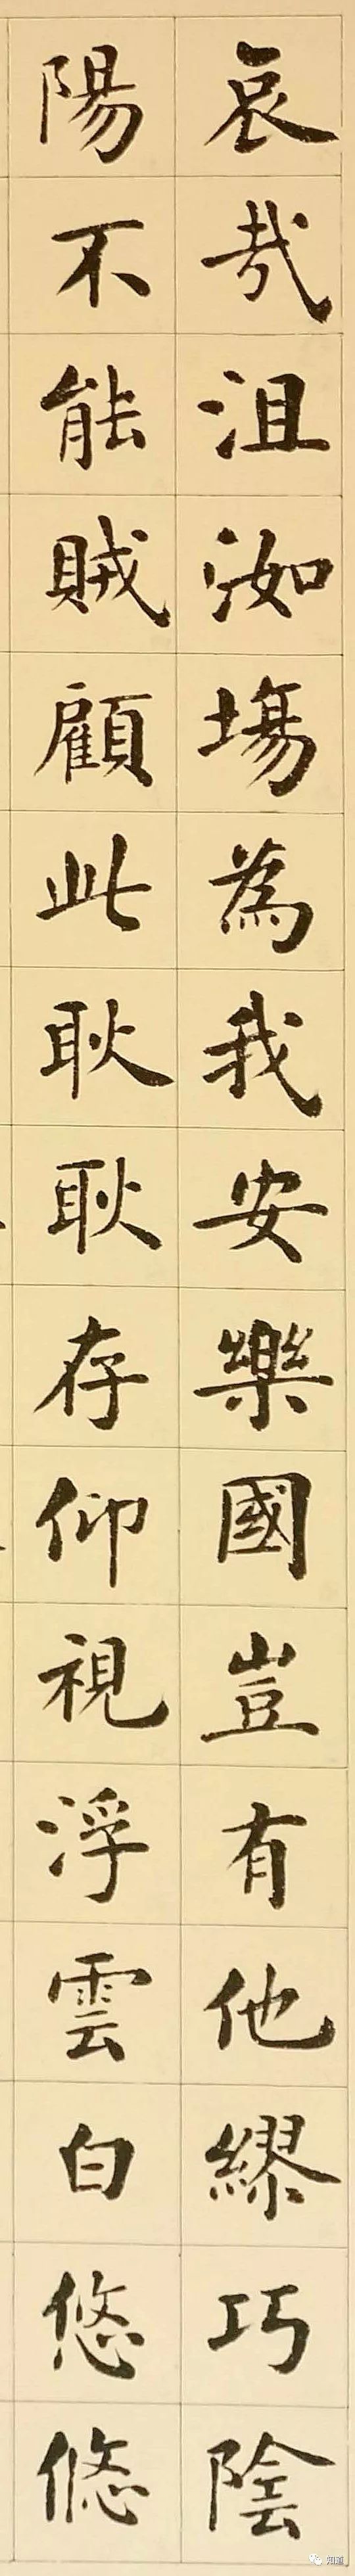 哀哉沮洳場為我安樂國豈有他繆巧陰
陽不能賊顧此耿耿存仰視浮雲白悠悠
知道